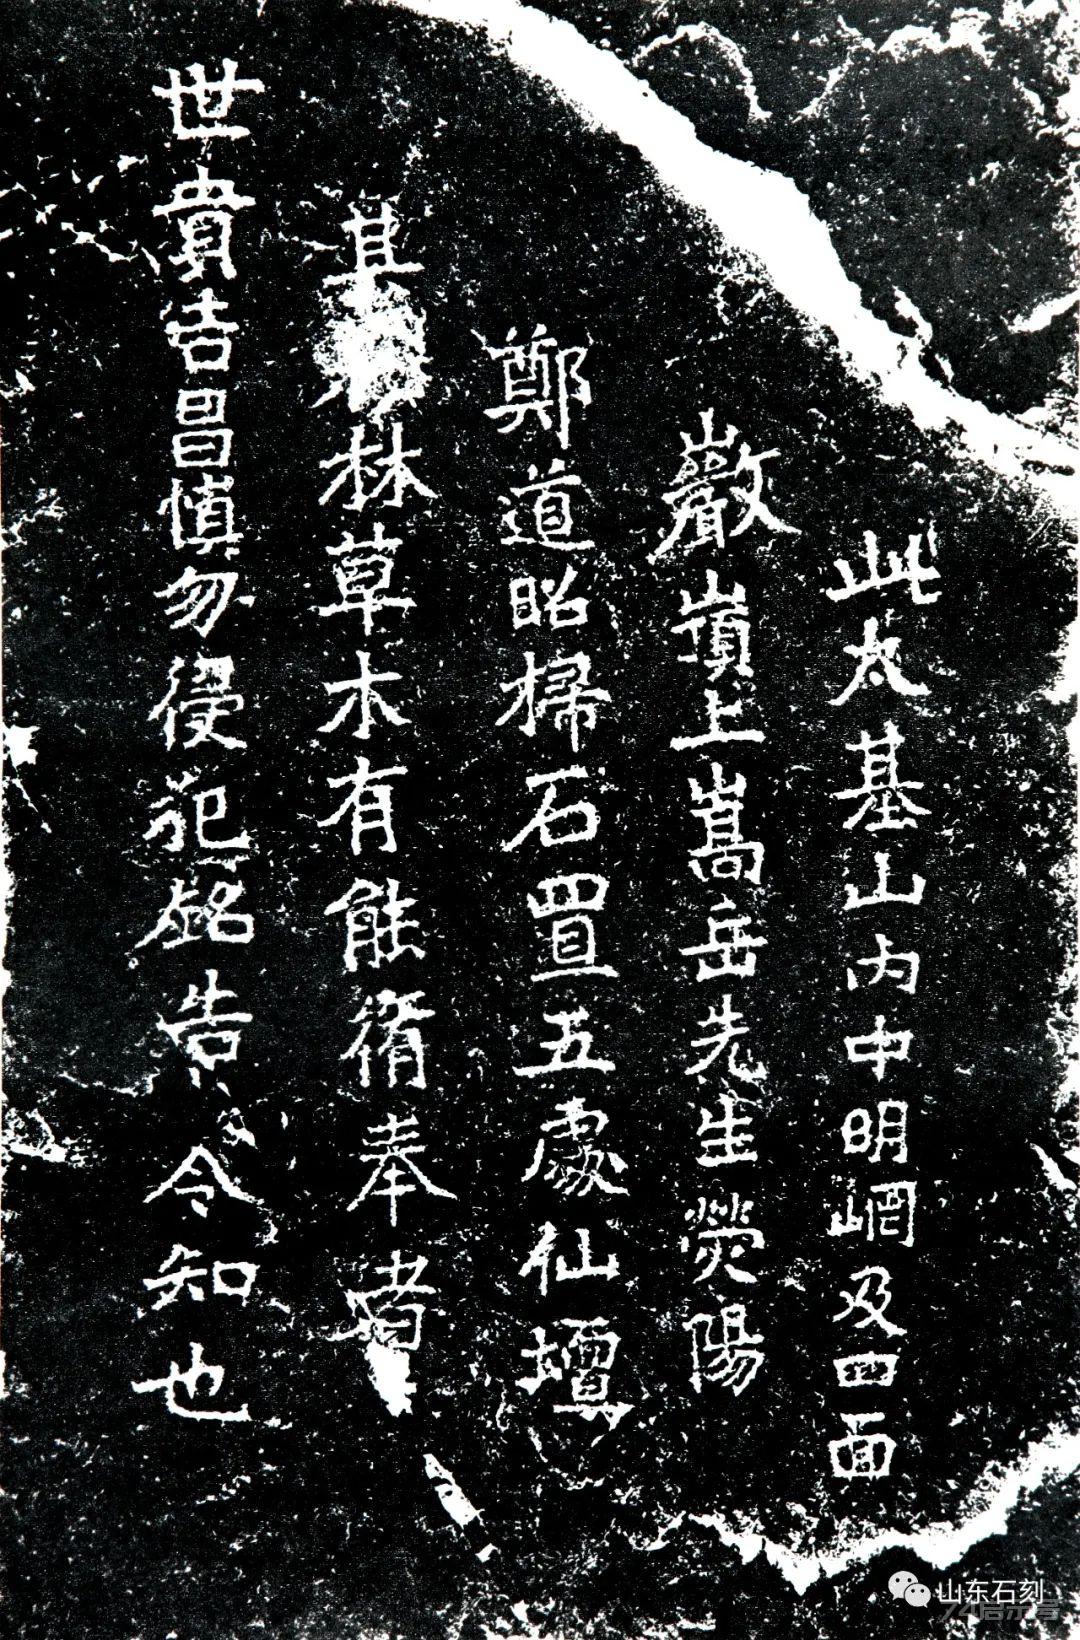 此太基山内中明㟠及四面
巖嶺上嵩岳先生熒陽
鄭道昭掃石置五處仙壇
其林草木有能脩奉者
世貴吉昌慎勿侵犯銘告令知也
山东石刻